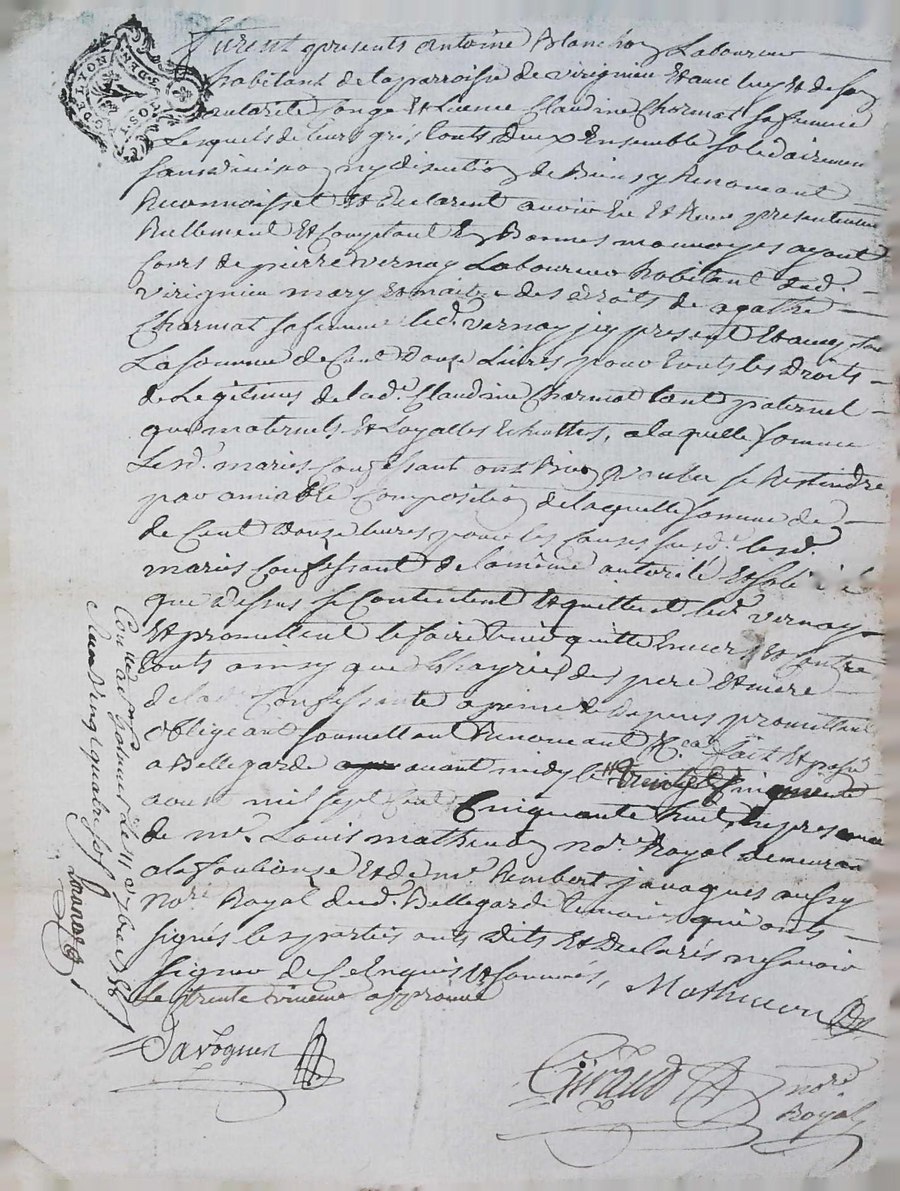 GEN. DE LYON
Furent presents antoine Blanchon Laboureur
habitant de la parroisse de virignieu Et avec luy Et de son
autorité Conge Et Licence Claudine Charmat sa femme
Lesquels de leurs gré, touts deux Ensemble solidairement
sans division ny discution de Biens y Renonçant
Reconnoissent Et Declarent avoir Eu Et Reçu presentement
Reellement Et Comptant En Bonnes monnoyes ayant
Cours de pierre vernay Laboureur habitant dud.
virignieu mary Et maitre des droits de agathe
Charmat sa femme led. vernay icy present Et acceptant
La somme de Cent douze Livres pour touts les Droits
de Legitimes de lad. Claudine Charmat tant paternel
que maternels Et Loyalles Echuttes, a laquelle somme
Lesd. mariés Confessant ont Bien voulu se Restindre
par amiable Composition de laquelle somme de
de Cent douze livres pour les Causes susd. lesd.
mariés Confessant de la même autorité Et
que Dessus se Contentent Et quittent led. vernay
Et promettent le faire tenir quitte Envers Et Contre
touts ainsy que hoyries des pere Et mere
de lad. Confessante a peine de Depens promettant
obligeant soumettant Renonçant &ca. fait Et passé
a Bellegarde avant midy le trente
aout mil sept Cent Cinquante huit, En presence
de me. Louis mathevon nore. Royal demeurant
a la foulouse Et de me. Rembert javogues aussy
nore. Royal dud. Bellegarde temoins qui ont
signés les parties ont dits Et Declarés ne savoir
signer de ce Enquis Et sommés,
Le trente unieme approuvé
Mathevon
Javogues
Giraud
nore
Royal
Con. Le 11e 7bre 1758
Reçu vingt quatre sols